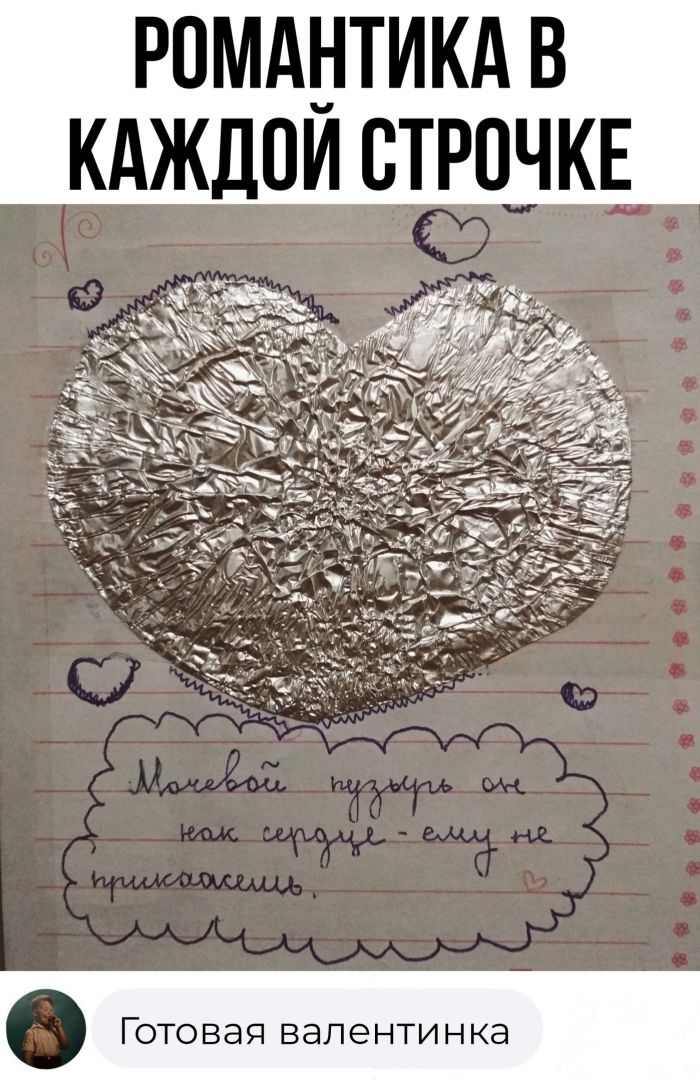 РОМАНТИКА В
КАЖДОЙ СТРОЧКЕ
Мочевой пузырь он
как сердце - ему не
прикажешь.
Готовая валентинка